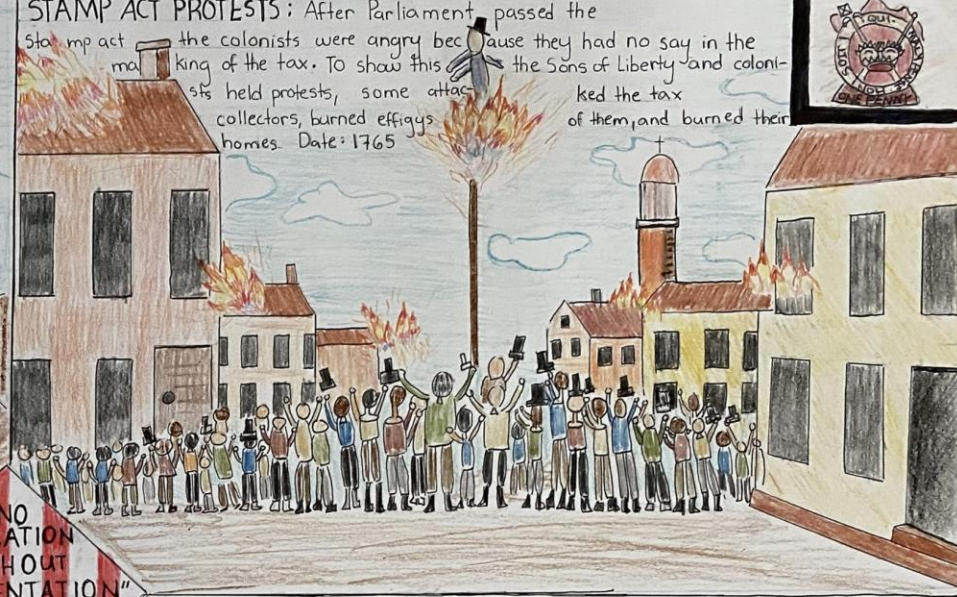 STAMP ACT PROTESTS: After Parliament passed the
Stamp act the colonists were angry because they had no say in the
making of the tax. To show this the Sons of Liberty and coloni-
sts held protests, some attacked the tax
collectors, burned effigys of them, and burned their
homes. Date: 1765
QUI
MAL Y PENSE
HONI
SOIT
ONE PENNY
NO
ATION
HOUT
NTATION"